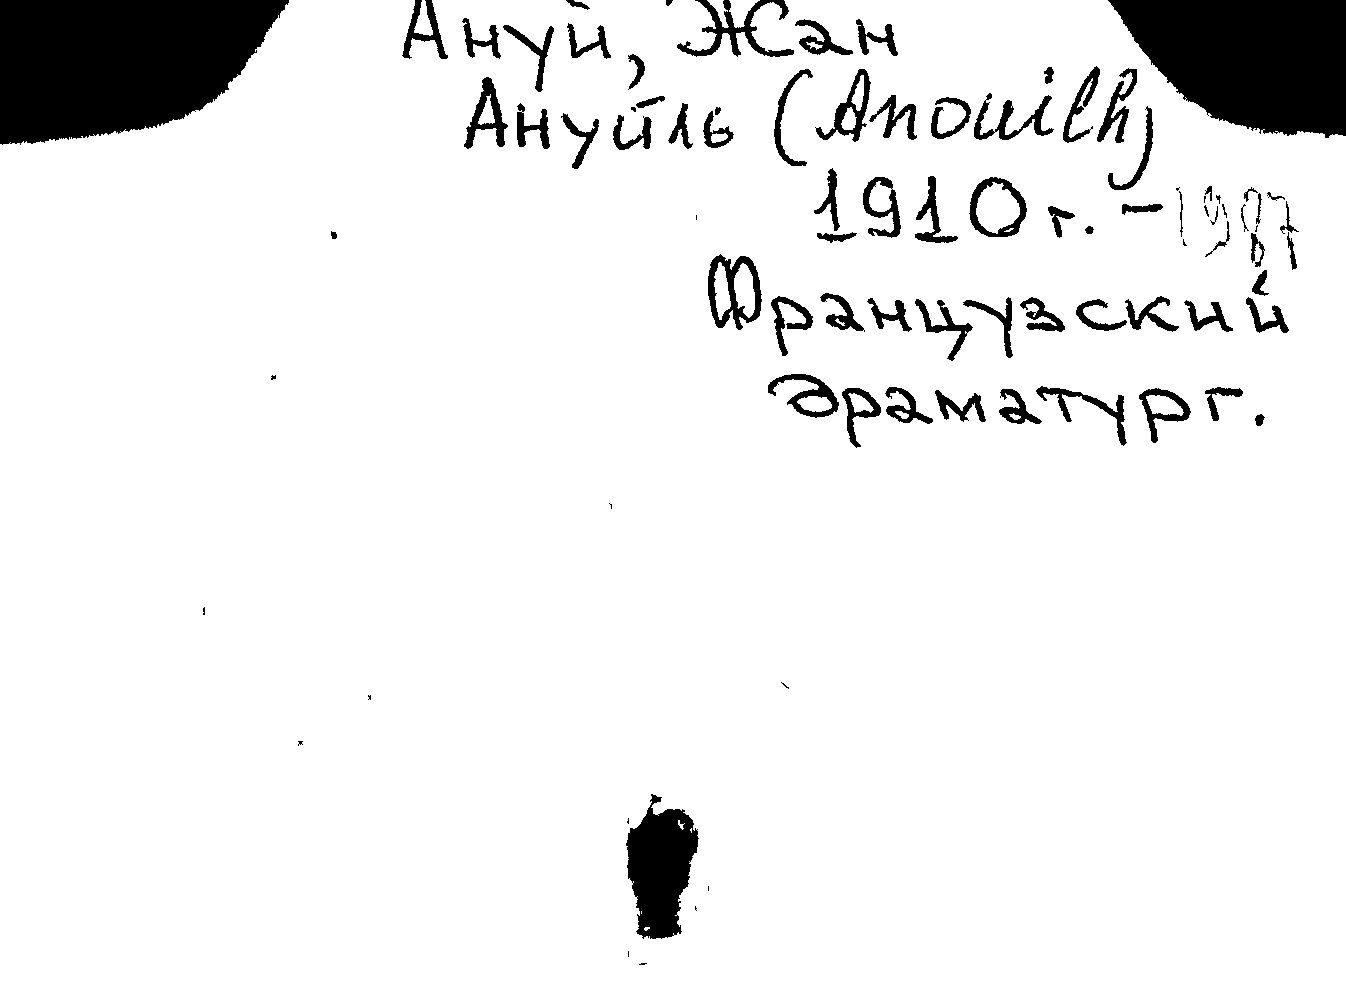 Ануй, Жан
Ануйль (Anouilh)
1910 г. - 1987
Французский
драматург.